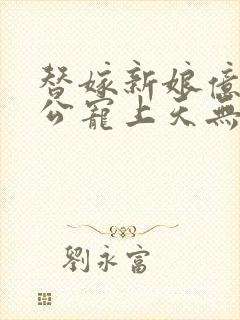 替嫁新娘億
公寵上天無
劉永富